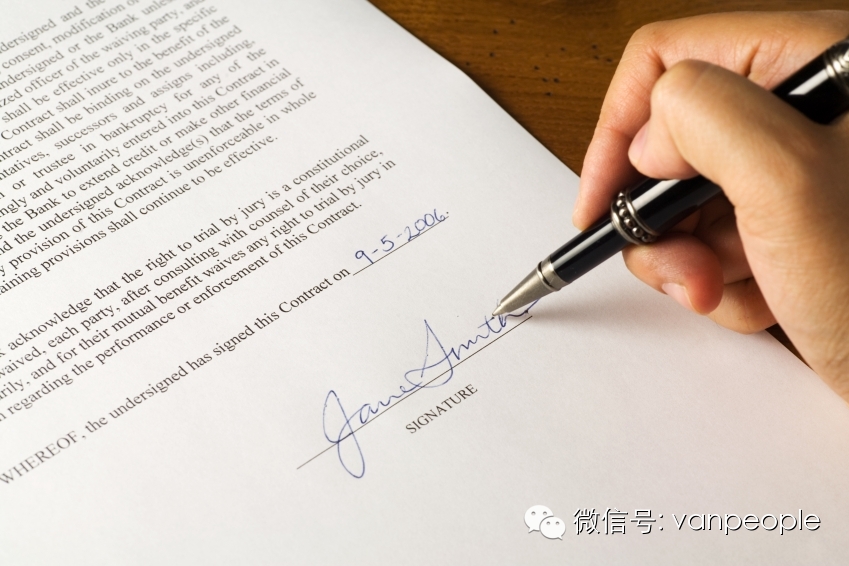 undersigned and the
consent, modification or
undersigned or the Bank unless
ized officer of the waiving party, and
shall be effective only in the specific
Contract shall inure to the benefit of the
ntract shall be binding on the undersigned
entatives, successors and assigns including,
n or trustee in bankruptcy for any of the
ngly and voluntarily entered into this Contract in
the Bank to extend credit or make other financial
nd the undersigned acknowledge(s) that the terms of
y provision of this Contract is unenforceable in whole
aining provisions shall continue to be effective.
k acknowledge that the right to trial by jury is a constitutional
waived, each party, after consulting with counsel of their choice,
arily, and for their mutual benefit waives any right to trial by jury in
n regarding the performance or enforcement of this Contract.
WHEREOF, the undersigned has signed this Contract on 9-5-2006.
Jane Smith
SIGNATURE
微信号: vanpeople